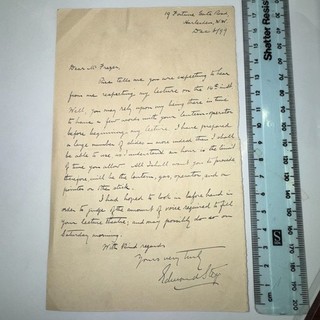 19 Fortune Gate Road
Harlesden, N.W.
Dec 6/99
Dear Mr Frazer,
Reid tells me you are expecting to hear
from me respecting my lecture on the 16th inst.
Well, you may rely upon my being there in time
to have a few words with your lantern-operator
before beginning my lecture. I have prepared
a large number of slides in more indeed than I shall
be able to use, as I understand an hour is the limit
of time you allow. All I shall want you to provide
therefore will be the lantern, gas, operator and a
pointer or thin stick.
I had hoped to look in before hand in
order to judge of the amount of voice required to fill
your lecture theatre, and may possibly do so on
Saturday morning.
With kind regards
Yours very truly
Edward Step
Shatter Resist